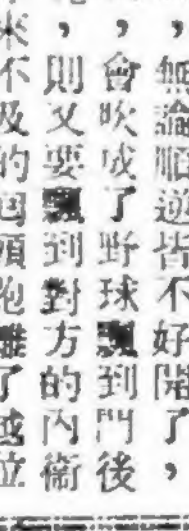 ，無論順逆皆不好開了，
，會吹成了野球飄到門後
，則又要飄到對方的內衛
來不及的回頭跑離了越位